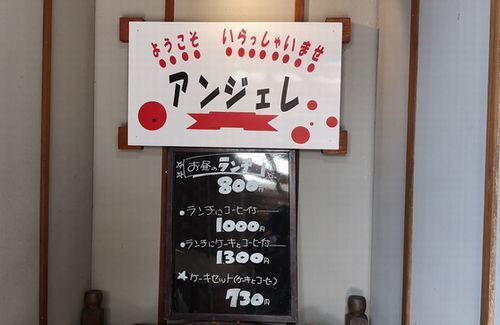 ようこそ いらっしゃいませ
アンジェレ
お昼のランチ
800円
ランチにコーヒー付
1000円
ランチにケーキとコーヒー付
1300円
ケーキセット(ケーキとコーヒー)
730円